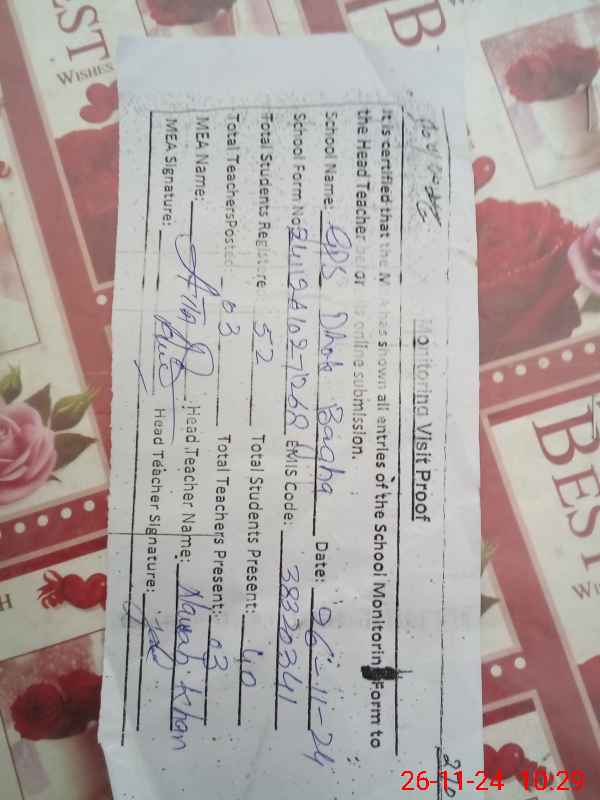 Monitoring Visit Proof
It is certified that the M A has shown all entries of the School Monitoring Form to
the Head Teacher before its online submission.
School Name: GPS Dhok Bagha Date: 26-11-24
School Form No: EMIS Code: 38320341
Total Students Registere 52 Total Students Present: 40
Total TeachersPosted 03 Total Teachers Present: 03
MEA Name: Head Teacher Name: Nawab Khan
MEA Signature: Head Teacher Signature:
BEST
WISHES
BEST
WI
26-11-24 10:29